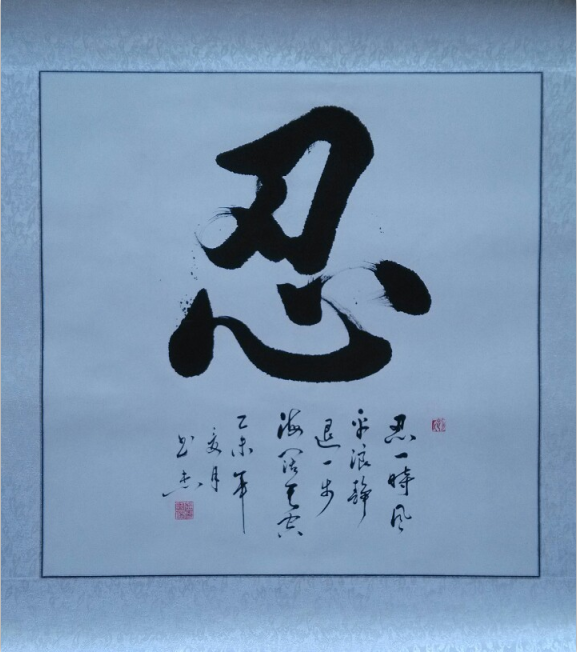 忍
忍一時风
平浪静
退一步
海阔天空
乙未年
夏月